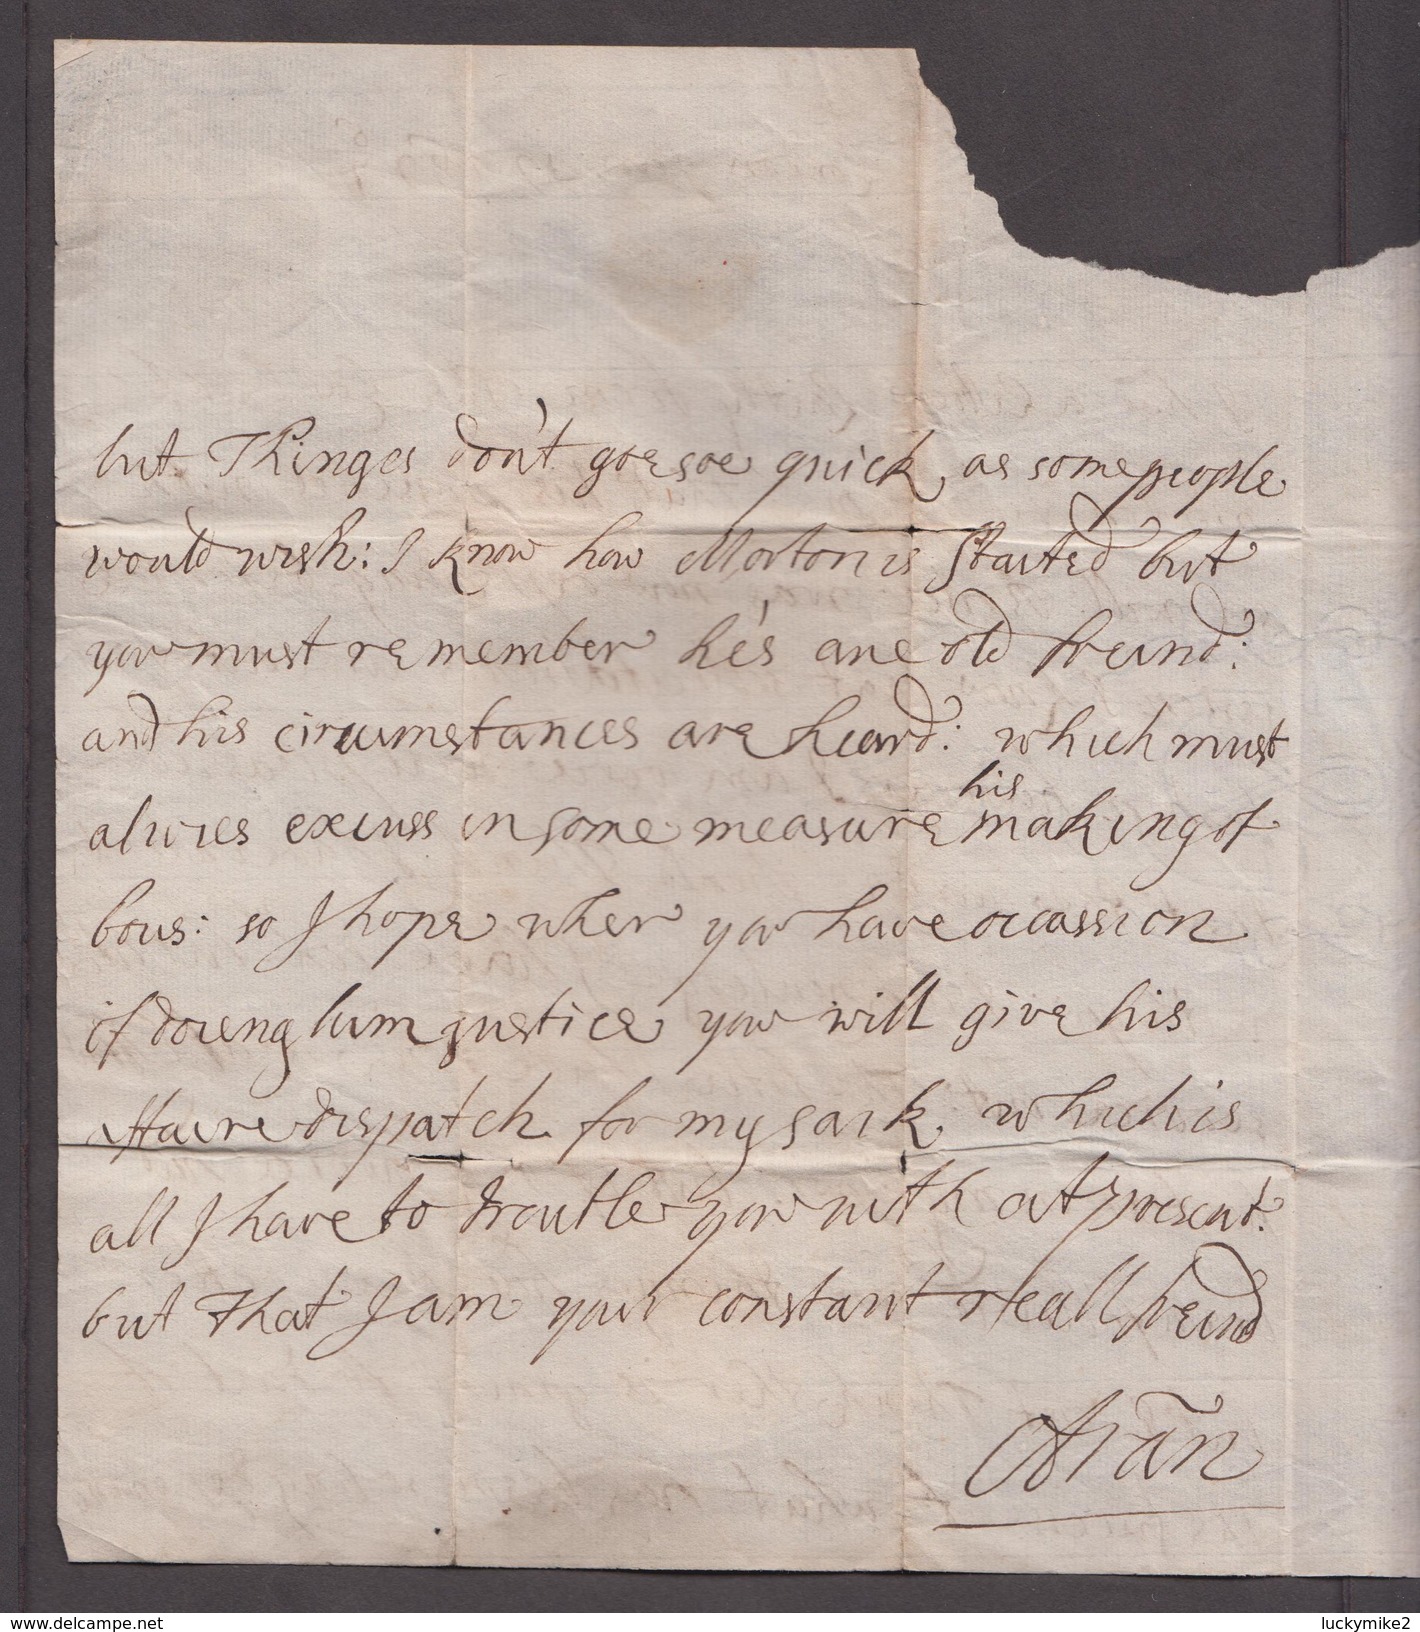 but Thinges don't goe soe quick, as some people
would wish: I know how Morton is stated but
you must remember he's ane old freind:
and his circumstances are heard: which must
alwies excuss in some measure his making of
bous: so I hope when you have occassion
of doieng him justice you will give his
affaire dispatch for my sack, which is
all I have to trouble you with at present:
but that I am your constant reall freind
Arran
delcampe.net
luckymike2